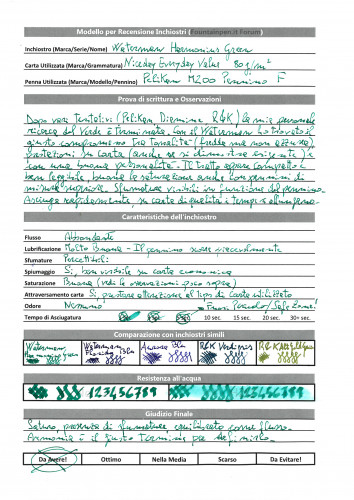 Modello per Recensione Inchiostri (Fountainpen.it Forum)
Inchiostro (Marca/Serie/Nome) Waterman Harmonius Green
Carta Utilizzata (Marca/Grammatura) Niceday Everyday Value 80g/m²
Penna Utilizzata (Marca/Modello/Pennino) Pelikan M200 Pennino F
Prova di scrittura e Osservazioni
Dopo vari tentativi (Pelikan, Diamine, R&K) la mia personale
ricerca del Verde è terminata. Con il Waterman ho trovato il
giusto compromesso tra tonalità (fredda ma non azzurra),
prestazioni su carta (anche se si dimostra esigente) e
con una buona personalità. Il tratto appare corposo e
ben leggibile, buona la saturazione anche con pennini di
misura superiore. Sfumature visibili in funzione del pennino.
Asciuga rapidamente, su carta di qualità i tempi si allungano.
Caratteristiche dell'inchiostro
Flusso Abbondante
Lubrificazione Molto Buona - Il pennino scorre piacevolmente
Sfumature Percettibili
Spiumaggio Si, ben visibile su carta economica
Saturazione Buona (vedi le osservazioni poco sopra)
Attraversamento carta Si, prestare attenzione al tipo di carta utilizzato
Odore Nessuno
Tempo di Asciugatura 10 sec. 15 sec. 20 sec. 30+ sec.
Comparazione con inchiostri simili
Waterman Harmonius Green
Waterman Florida Blu
Aurora Blu
R&K Verdigris
R&K Alt-Goldgrün
Resistenza all'acqua
123456789 123456789
Giudizio Finale
Saturo, presenza di sfumature, equilibrato come flusso.
Armonia è il giusto termine per definirlo.
Da Avere! Ottimo Nella Media Scarso Da Evitare!